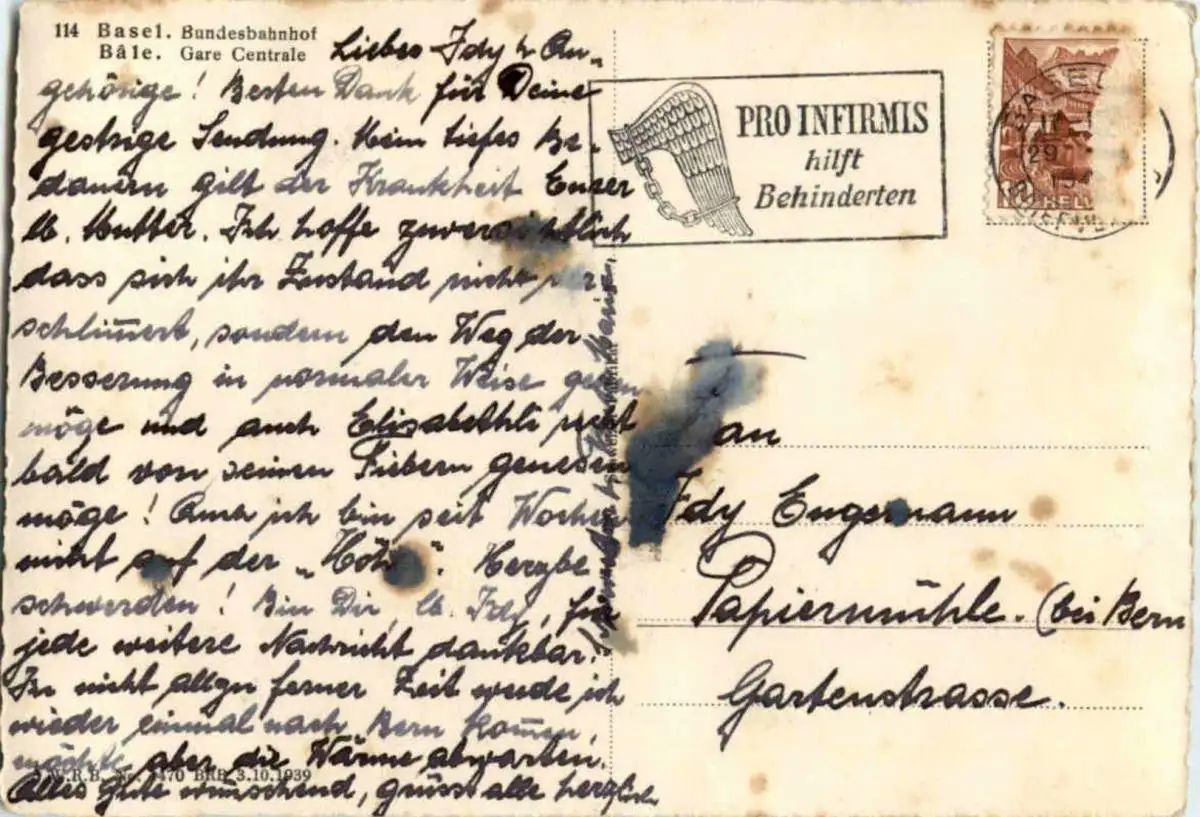 114 Basel. Bundesbahnhof
Bâle. Gare Centrale
Liebes Idy & An-
gehörige! Besten Dank für Deine
gestrige Sendung. Mein tiefes Be-
dauern gilt der Krankheit Euser
lb. Mutter. Ich hoffe zuversichtlich
dass sich ihr Zustand nicht ver
schlim̄ert, sondern den Weg der
Besserung in normaler Weise gehen
möge und auch Elisabethli recht
bald von seinen Fiebern genesen
möge! Auch ich bin seit Wochen
nicht auf der „Höhe". Herzbe
schwerden! Bin Dir, lb. Idy, für
jede weitere Nachricht dankbar!
In nicht allzu ferner Zeit werde ich
wieder einmal nach Bern kom̄en,
möchte aber die Wärme abwarten.
Alles Gute wünschend, grüsst alle herzlich
W.R.B. No. 470 BRB 3.10.1939
PRO INFIRMIS
hilft
Behinderten
BASEL
29
HELV
an
Idy Engemann
Papiermühle. (bei Bern
Gartenstrasse.